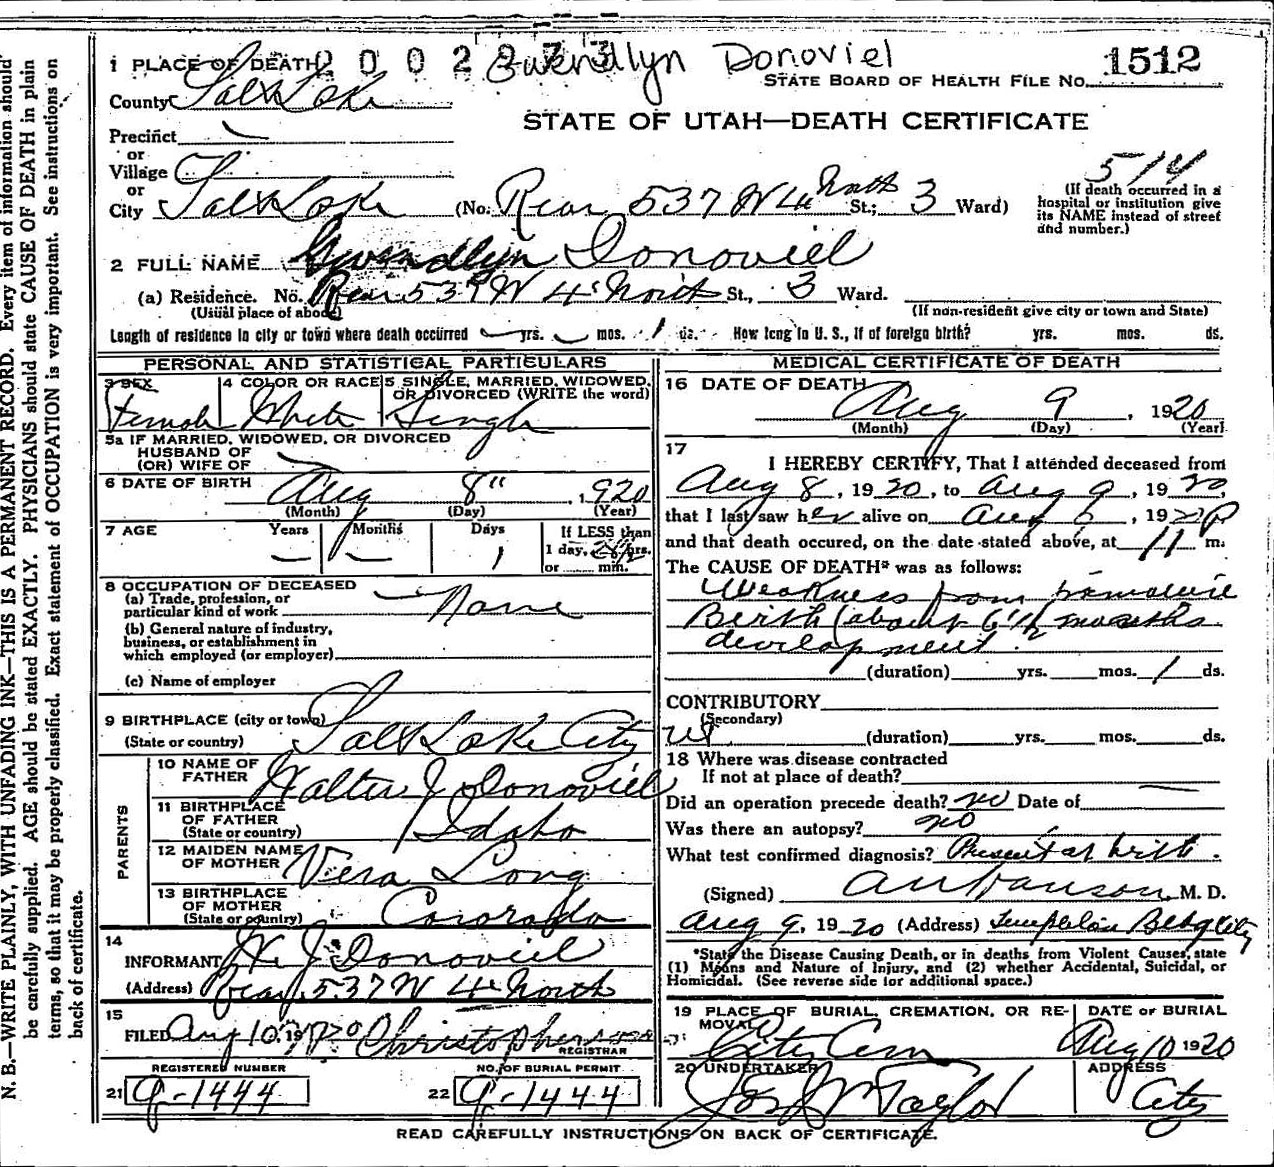 Gwendlyn Donoviel
1 PLACE OF DEATH 0002973
STATE BOARD OF HEALTH FILE NO. 1512
County Salt Lake
STATE OF UTAH—DEATH CERTIFICATE
Precinct
or
Village
or
City Salt Lake (No. Rear 537 W 4th North St.; 3 Ward)
514
(If death occurred in a hospital or institution give its NAME instead of street and number.)
2 FULL NAME Gwendlyn Donoviel
(a) Residence. No. Rear 537 W 4th North St., 3 Ward.
(Usual place of abode) (If non-resident give city or town and State)
Length of residence in city or town where death occurred yrs. mos. 1 ds. How long in U. S., if of foreign birth? yrs. mos. ds.
PERSONAL AND STATISTICAL PARTICULARS
3 SEX Female
4 COLOR OR RACE White
5 SINGLE, MARRIED, WIDOWED, OR DIVORCED (WRITE the word) Single
5a IF MARRIED, WIDOWED, OR DIVORCED
HUSBAND OF
(OR) WIFE OF
6 DATE OF BIRTH Aug 8" 1920
(Month) (Day) (Year)
7 AGE Years Months Days 1 If LESS than
1 day, hrs.
or min.
8 OCCUPATION OF DECEASED
(a) Trade, profession, or
particular kind of work None
(b) General nature of industry,
business, or establishment in
which employed (or employer)
(c) Name of employer
9 BIRTHPLACE (city or town)
(State or country) Salt Lake City Ut
PARENTS
10 NAME OF
FATHER Walter J Donoviel
11 BIRTHPLACE
OF FATHER
(State or country) Idaho
12 MAIDEN NAME
OF MOTHER Vera Long
13 BIRTHPLACE
OF MOTHER
(State or country) Colorado
14
INFORMANT W J Donoviel
(Address) Rear 537 W 4th North
15
FILED Aug 10, 1920 Christopherson
REGISTRAR
REGISTERED NUMBER NO. OF BURIAL PERMIT
21 9-1444 22 9-1444
MEDICAL CERTIFICATE OF DEATH
16 DATE OF DEATH
Aug 9, 1920
(Month) (Day) (Year)
17
I HEREBY CERTIFY, That I attended deceased from
Aug 8, 1920, to Aug 9, 1920,
that I last saw her alive on Aug 8, 1920
and that death occured, on the date stated above, at 11 P m.
The CAUSE OF DEATH* was as follows:
Weakness from premature
Birth (about 6 1/2 months
development.
(duration) yrs. mos. 1 ds.
CONTRIBUTORY
(Secondary)
(duration) yrs. mos. ds.
18 Where was disease contracted
If not at place of death?
Did an operation precede death? no Date of
Was there an autopsy? no
What test confirmed diagnosis? Present at birth.
(Signed) Hanson, M. D.
Aug 9, 1920 (Address) Templeton Bldg City
*State the Disease Causing Death, or in deaths from Violent Causes, state
(1) Means and Nature of Injury, and (2) whether Accidental, Suicidal, or
Homicidal. (See reverse side for additional space.)
19 PLACE OF BURIAL, CREMATION, OR REMOVAL City Cem
DATE OF BURIAL Aug 10 1920
20 UNDERTAKER Jos Wm Taylor
ADDRESS City
READ CAREFULLY INSTRUCTIONS ON BACK OF CERTIFICATE.
N. B.—WRITE PLAINLY, WITH UNFADING INK—THIS IS A PERMANENT RECORD. Every item of information should
be carefully supplied. AGE should be stated EXACTLY. PHYSICIANS should state CAUSE OF DEATH in plain
terms, so that it may be properly classified. Exact statement of OCCUPATION is very important. See instructions on
back of certificate.